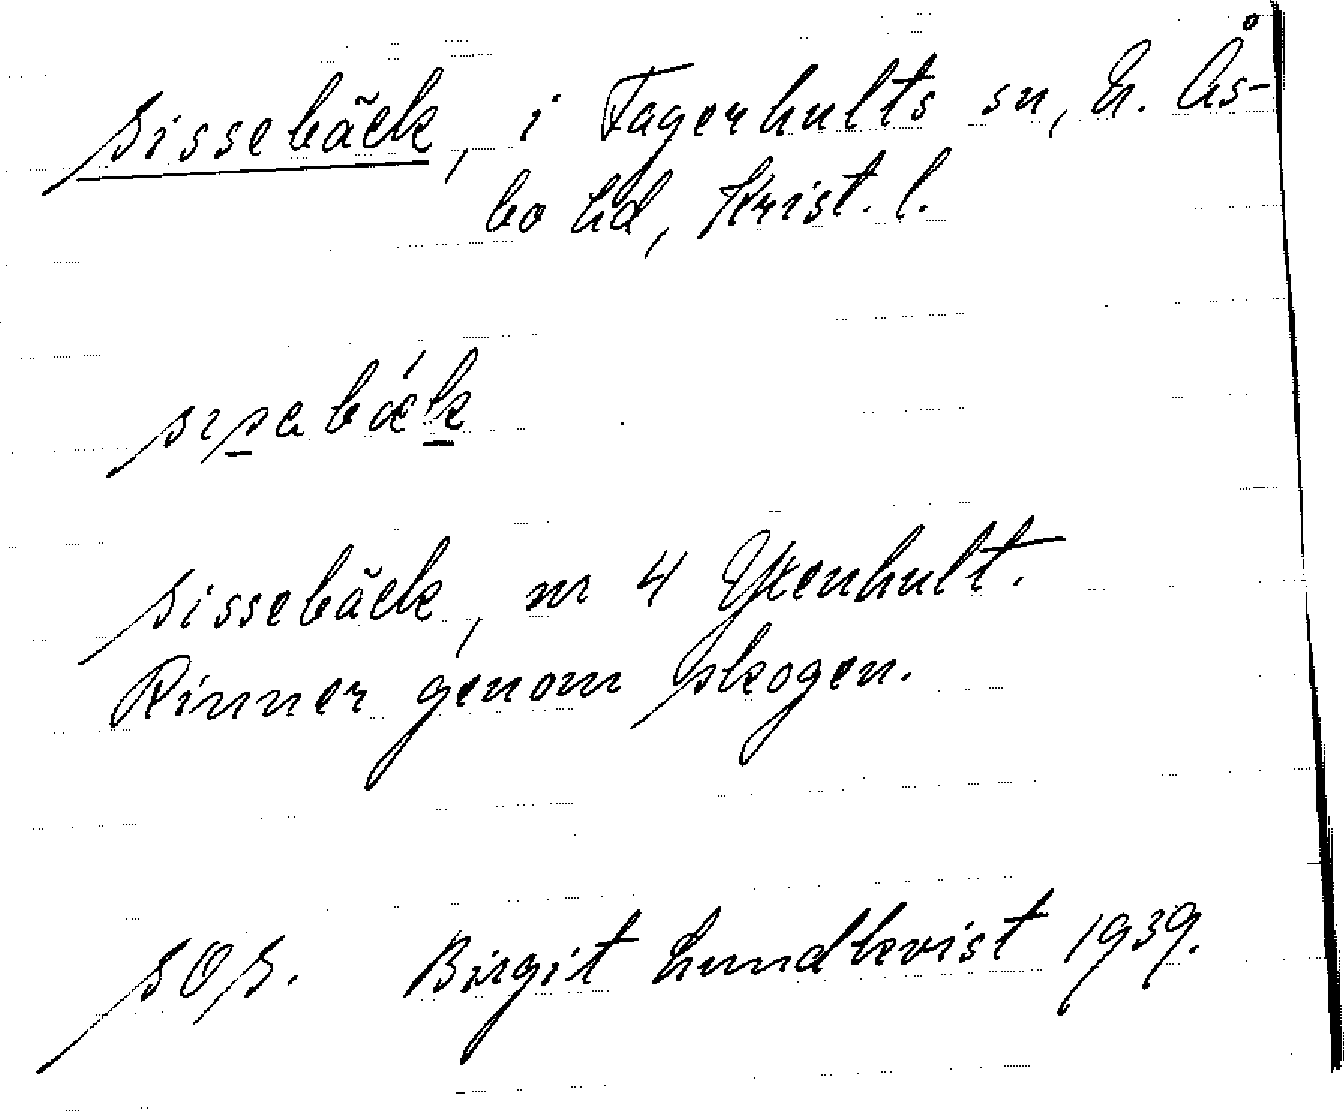 Sissebäck, i Fagerhults sn, N. Ås-
bo hd, Krist. l.
Sissebäck, nr 4 Yxenhult.
Rinner genom skogen.
SOS. Birgit Lundkvist 1939.